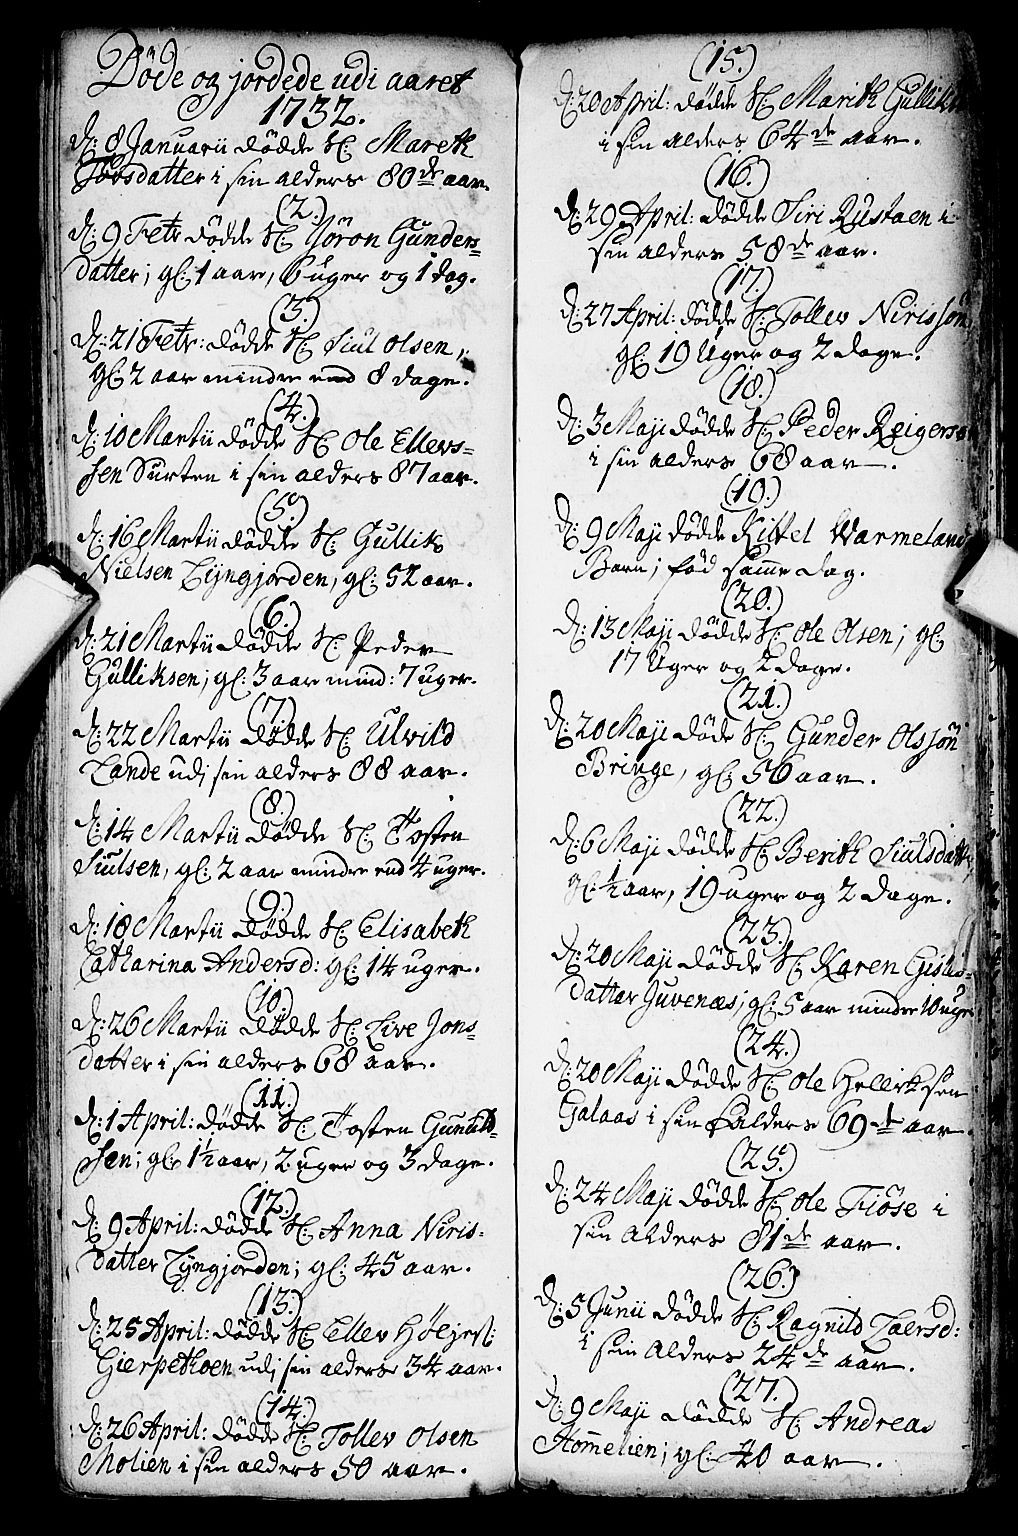 Døde og jordede udi aaret
1732.
D: 8 Januarii dødde Sl: Mareth
datter i sin alders 80de aar.
(2.)
D: 9 Febr dødde Sl: Jöron Gunders-
datter; gl: 1 aar, 6 uger og 1 dag.
(3.)
D: 21 Febr: dødde Sl: Siul Olsen,
gl: 2 aar mindre end 8 dage.
(4.)
D: 10 Martii dødde Sl: Ole Ellevs-
sen Surten i sin alders 87 aar.
(5.)
D: 16 Martii dødde Sl: Gullik
Nielsen Lyngjorden, gl: 52 aar.
(6.)
D: 21 Martii dødde Sl: Peder
Gulliksen, gl: 3 aar mind: 7 uger.
(7.)
D: 22 Martii dødde Sl: Ulvild
Lande udi sin alders 88 aar.
(8.)
D: 14 Martii dødde Sl: Tosten
Siulsen, gl: 2 aar mindre end 4 uger.
(9.)
D: 18 Martii dødde Sl: Elisabeth
Catharina Andersd: gl: 14 uger.
(10.)
D: 26 Martii dødde Sl: Live Jons-
datter i sin alders 68 aar.
(11.)
D: 1 April: dødde Sl: Tosten Gunuld-
sen; gl: 1½ aar, 2 uger og 3 dage.
(12.)
D: 9 April: dødde Sl: Anna Niris-
datter Lyngjorden; gl: 45 aar.
(13.)
D: 25 April: dødde Sl: Ellev
Gierpethoen udi sin alders 34 aar.
(14.)
D: 26 April: dødde Sl: Tollev Olsen
Molien i sin alders 50 aar.
(15.)
D: 20 April: dødde Sl: Marith
i sin alders 64de aar.
(16.)
D: 29 April: dødde Siri Rustaen i
sin alders 58de aar.
(17.)
D: 27 April: dødde Sl: Tollev Nirissøn
gl: 19 Uger og 2 dage.
(18.)
D: 3 Maji dødde Sl: Peder
i sin alders 68 aar.
(19.)
D: 9 Maji dødde Kittel Warmeland
Barn; fød samme dag.
(20.)
D: 13 Maji dødde Sl: Ole Olsen; gl:
17 Uger og 2 dage.
(21.)
D: 20 Maji døde Sl: Gunder Olssøn
Bringe, gl: 56 aar.
(22.)
D: 6 Maji dødde Sl: Berith
gl: ½ aar, 19 uger og 2 dage.
(23.)
D: 20 Maji dødde Sl: Karen
datter Juvenæs; gl: 5 aar mindre 10
(24.)
D: 20 Maji dødde Sl: Ole Hellicksen
Galaas i sin alders 69de aar.
(25.)
D: 24 Maji dødde Sl: Ole Fiøse i
sin Alders 81de aar.
(26.)
D: 5 Junii dødde Sl: Ragnild Laersd:
i sin Alders 24de aar.
(27.)
D: 9 Maji dødde Sl: Andreas
Homelien; gl: 40 aar.